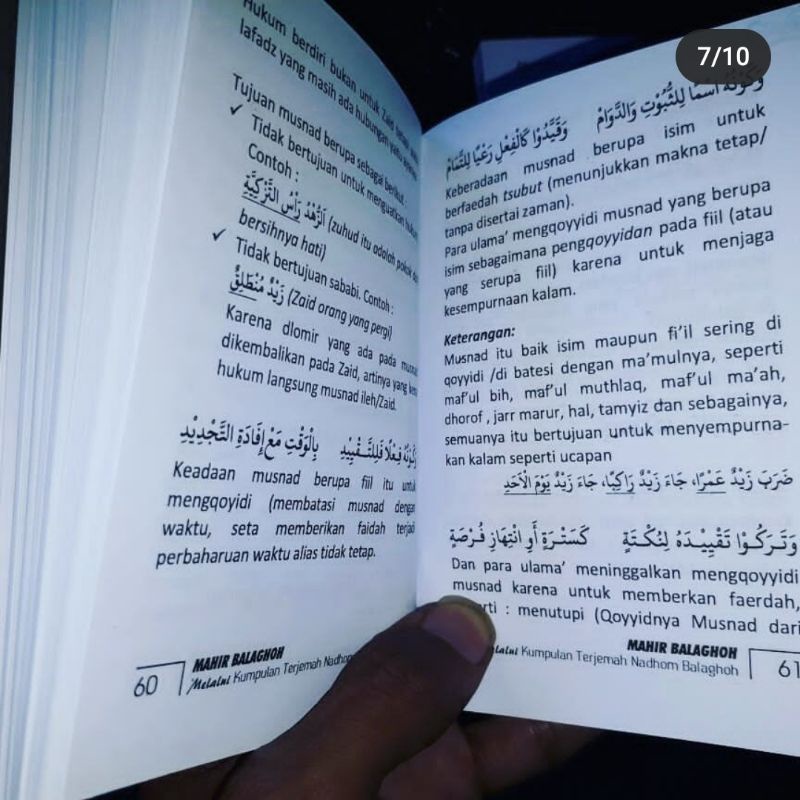 Hukum berdiri bukan untuk Zaid
lafadz yang masih ada hubungan
Tujuan musnad berupa sebagai berikut :
✓ Tidak bertujuan untuk menguatkan
Contoh :
اَلزُّهْدُ رَأْسُ التَّزْكِيَّةِ (zuhud itu adalah pokok
bersihnya hati)
✓ Tidak bertujuan sababi. Contoh :
زَيْدٌ مُنْطَلِقٌ (Zaid orang yang pergi)
Karena dlomir yang ada pada
dikembalikan pada Zaid, artinya yang
hukum langsung musnad ileh/Zaid.
وَكَوْنُهُ فِعْلًا فَلِلتَّقْيِيْدِ بِالْوَقْتِ مَعْ إِفَادَةِ التَّجْدِيْدِ
Keadaan musnad berupa fiil itu untuk
mengqoyidi (membatasi musnad dengan
waktu, seta memberikan faidah terjadi
perbaharuan waktu alias tidak tetap.
60
MAHIR BALAGHOH
Melalui Kumpulan Terjemah Nadhom
7/10
وَكَوْنُهُ اسْمًا لِلثُّبُوْتِ وَالدَّوَامْ وَقَيَّدُوْا كَالْفِعْلِ رَعْيًا لِلتَّمَامْ
Keberadaan musnad berupa isim untuk
berfaedah tsubut (menunjukkan makna tetap/
tanpa disertai zaman).
Para ulama' mengqoyyidi musnad yang berupa
isim sebagaimana pengqoyyidan pada fiil (atau
yang serupa fiil) karena untuk menjaga
kesempurnaan kalam.
Keterangan:
Musnad itu baik isim maupun fi'il sering di
qoyyidi /di batesi dengan ma'mulnya, seperti
maf'ul bih, maf'ul muthlaq, maf'ul ma'ah,
dhorof , jarr marur, hal, tamyiz dan sebagainya,
semuanya itu bertujuan untuk menyempurna-
kan kalam seperti ucapan
ضَرَبَ زَيْدٌ عَمْرًا، جَاءَ زَيْدٌ رَاكِبًا، جَاءَ زَيْدٌ يَوْمَ الْأَحَدِ
وَتَرَكُوْا تَقْيِيْدَهُ لِنُكْتَةٍ كَسَتْرَةٍ أَوِ انْتِهَازِ فُرْصَةٍ
Dan para ulama' meninggalkan mengqoyyidi
musnad karena untuk memberkan faerdah,
: menutupi (Qoyyidnya Musnad dari
MAHIR BALAGHOH
Kumpulan Terjemah Nadhom Balaghoh
61